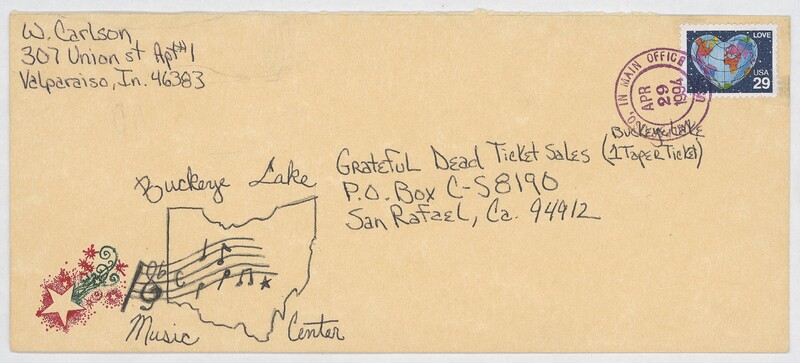 W. Carlson
307 Union St Apt#1
Valparaiso, In. 46383
LOVE
USA
29
O, IN MAIN OFFICE
APR
29
1994
US
Buckeye Lake
(1 Taper Ticket)
Grateful Dead Ticket Sales
P.O. Box C-S8190
San Rafael, Ca. 94912
Buckeye Lake
Music Center